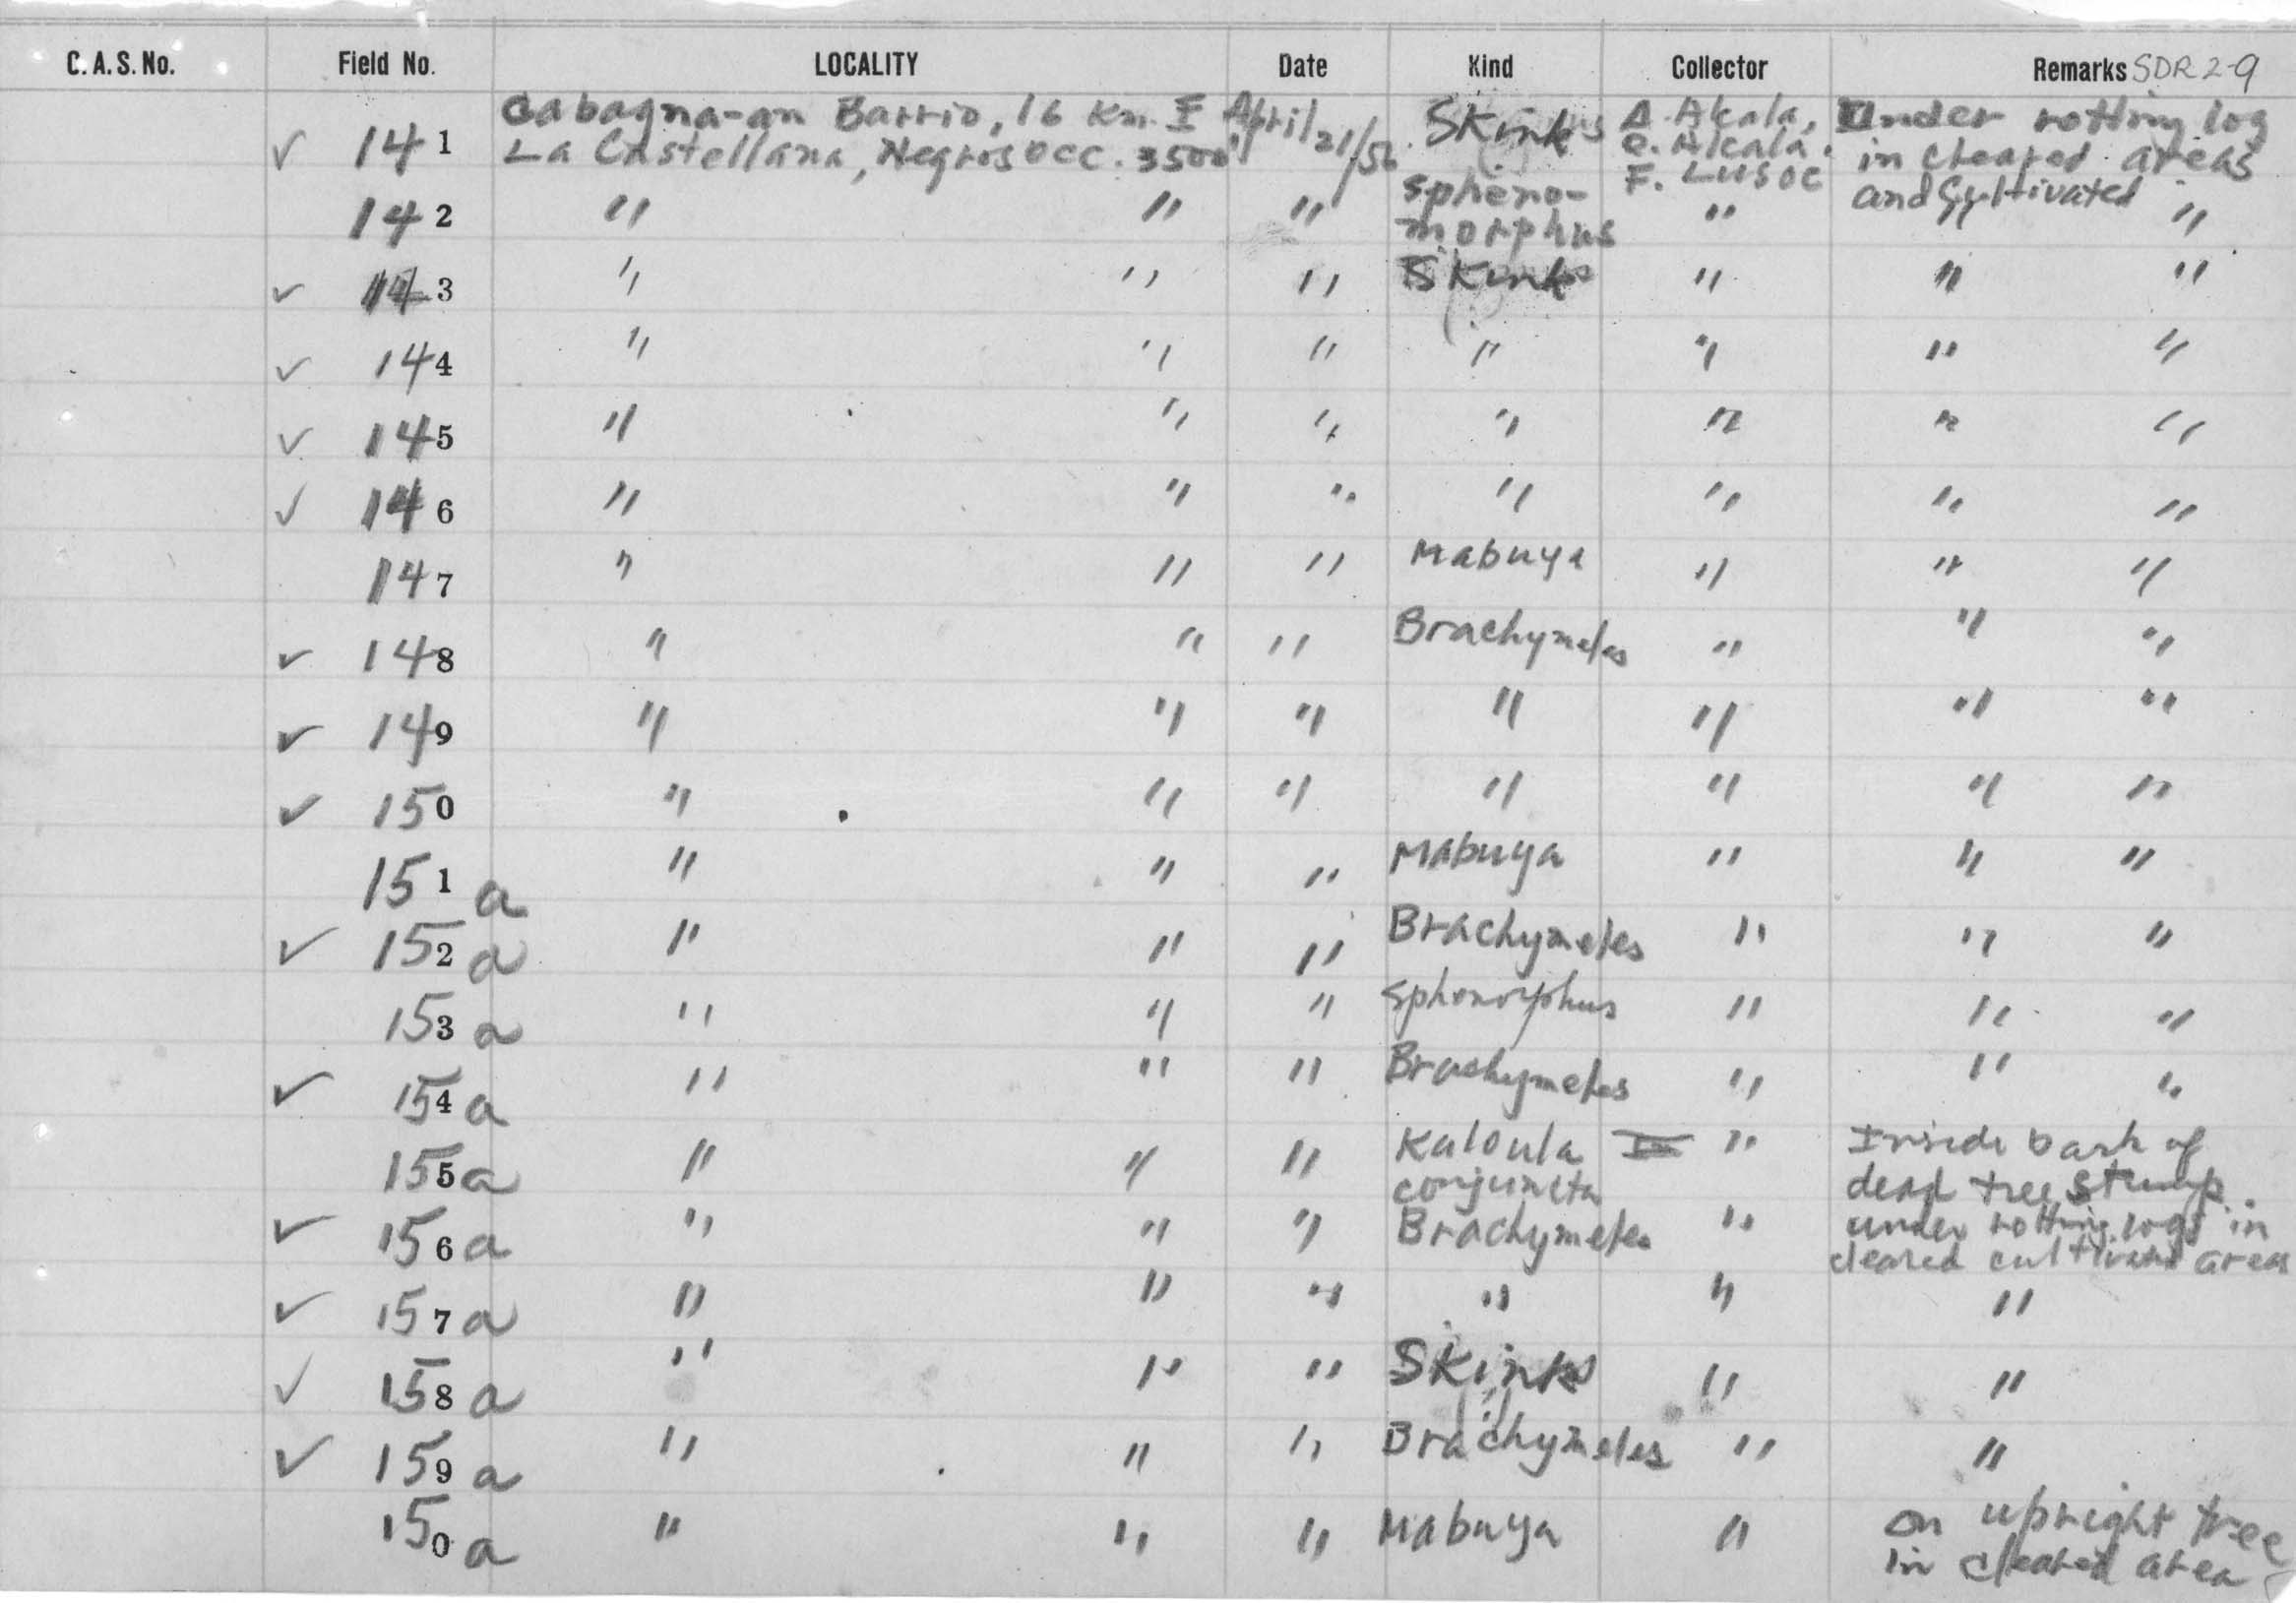 C.A.S. No. Field No. LOCALITY Date Kind Collector Remarks SDR 2-9
✓ 141 Cabagna-an Barrio, 16 Km. E April 21/56 Skinks A. Alcala, Under rotting log
La Castellana, Negros Occ. 3500' e. Alcala. in cleared areas
F. Lusoc and Cultivated
142 " " " Spheno- " " "
morphus
✓ 143 " " " Skinks " " "
✓ 144 " " " " " " "
✓ 145 " " " " " " "
✓ 146 " " " " " " "
147 " " " Mabuya " " "
✓ 148 " " " Brachymeles " " "
✓ 149 " " " " " " "
✓ 150 " " " " " " "
151 a " " " Mabuya " " "
✓ 152 a " " " Brachymeles " " "
153 a " " " Sphenorphus " " "
✓ 154 a " " " Brachymeles " " "
155 a " " " Kaloula " Inside bark of
conjuncta dead tree stump.
✓ 156 a " " " Brachymeles " under rotting logs in
cleared cultivated area
✓ 157 a " " " " " "
✓ 158 a " " " Skinks " "
✓ 159 a " " " Brachymeles " "
150 a " " " Mabuya " on upright tree
in cleared area